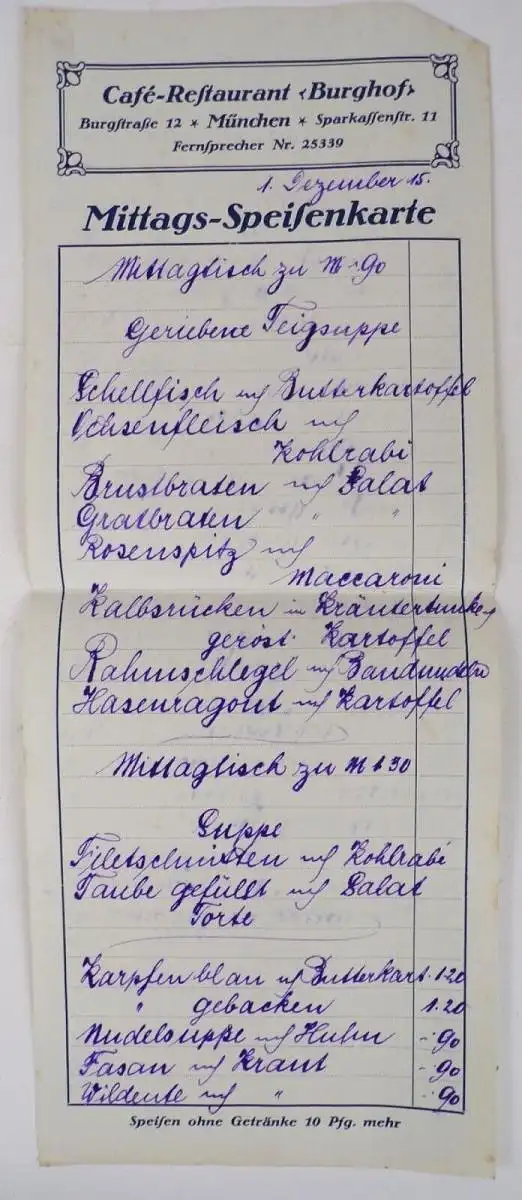 Café-Reſtaurant ‹Burghof›
Burgſtraße 12 * München * Sparkaſſenſtr. 11
Fernſprecher Nr. 25339
1. Dezember 15.
Mittags-Speiſenkarte
Mittagtisch zu M -.90
Geriebene Teigsuppe
Schellfisch mit Butterkartoffel
Ochsenfleisch mit
Kohlrabi
Brustbraten mit Salat
Gratbraten " "
Rosenspitz mit
Maccaroni
Kalbsrücken in Kräutertunke
geröst. Kartoffel
Rahmschlegel mit Bandnudeln
Hasenragout mit Kartoffel
Mittagtisch zu M 1.30
Suppe
Filetschnitten mit Kohlrabi
Taube gefüllt mit Salat
Torte
Karpfen blau mit Butterkart. 1.20
" gebacken 1.20
Nudelsuppe mit Huhn -.90
Fasan mit Kraut -.90
Wildente mit " -.90
Speiſen ohne Getränke 10 Pfg. mehr